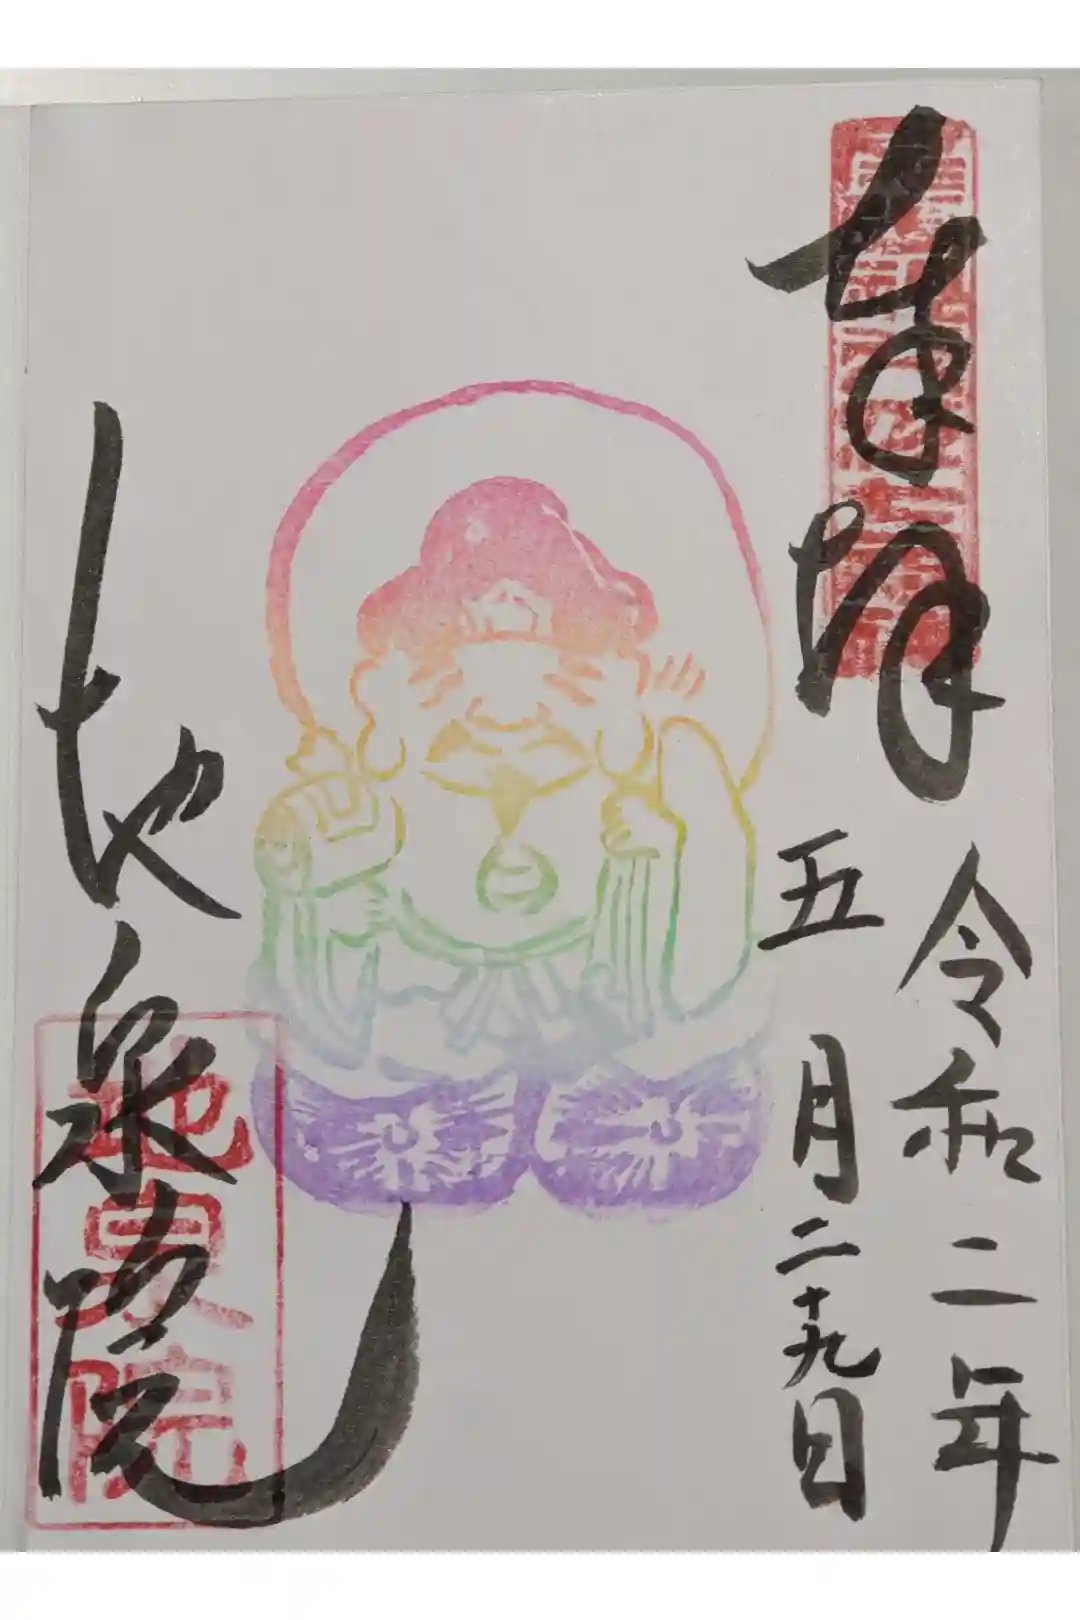 奉拝
令和二年
五月二十九日
地泉院
地泉院